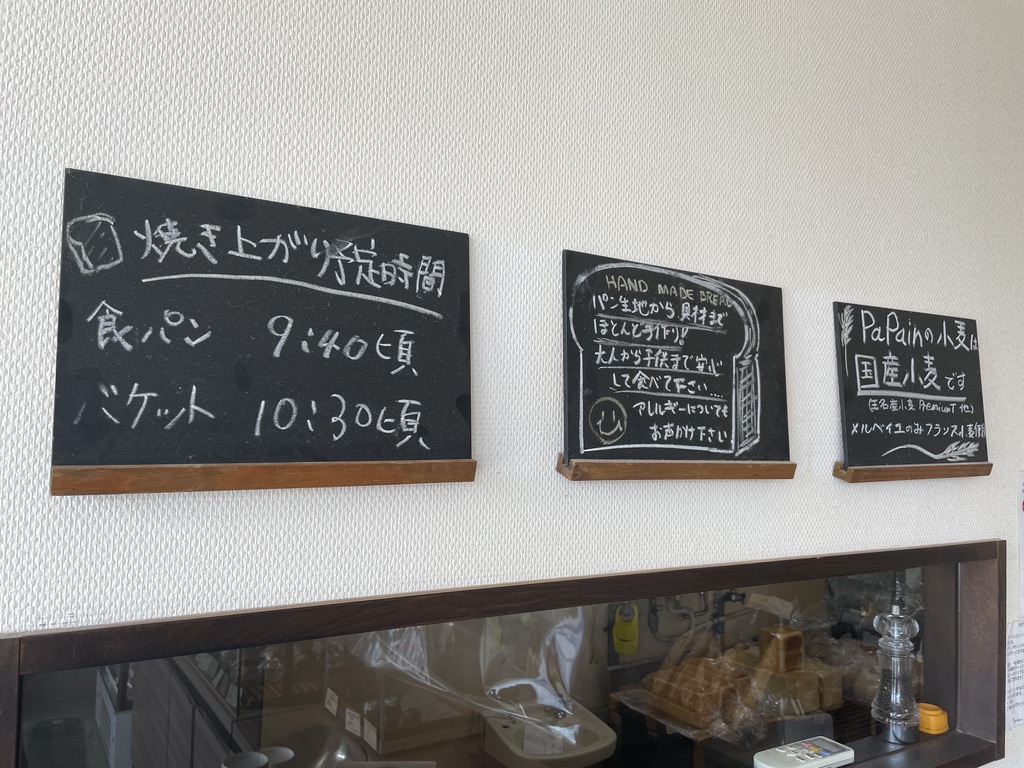 焼き上がり予定時間
食パン 9:40頃
バケット 10:30頃
HAND MADE BREAD
パン生地から、具材まで
ほとんど手作り!
大人から子供まで安心
して食べて下さい....
アレルギーについても
お声かけ下さい
PaPainの小麦は
国産小麦です
PremiumT 他)
メルベイユのみフランス小麦使用